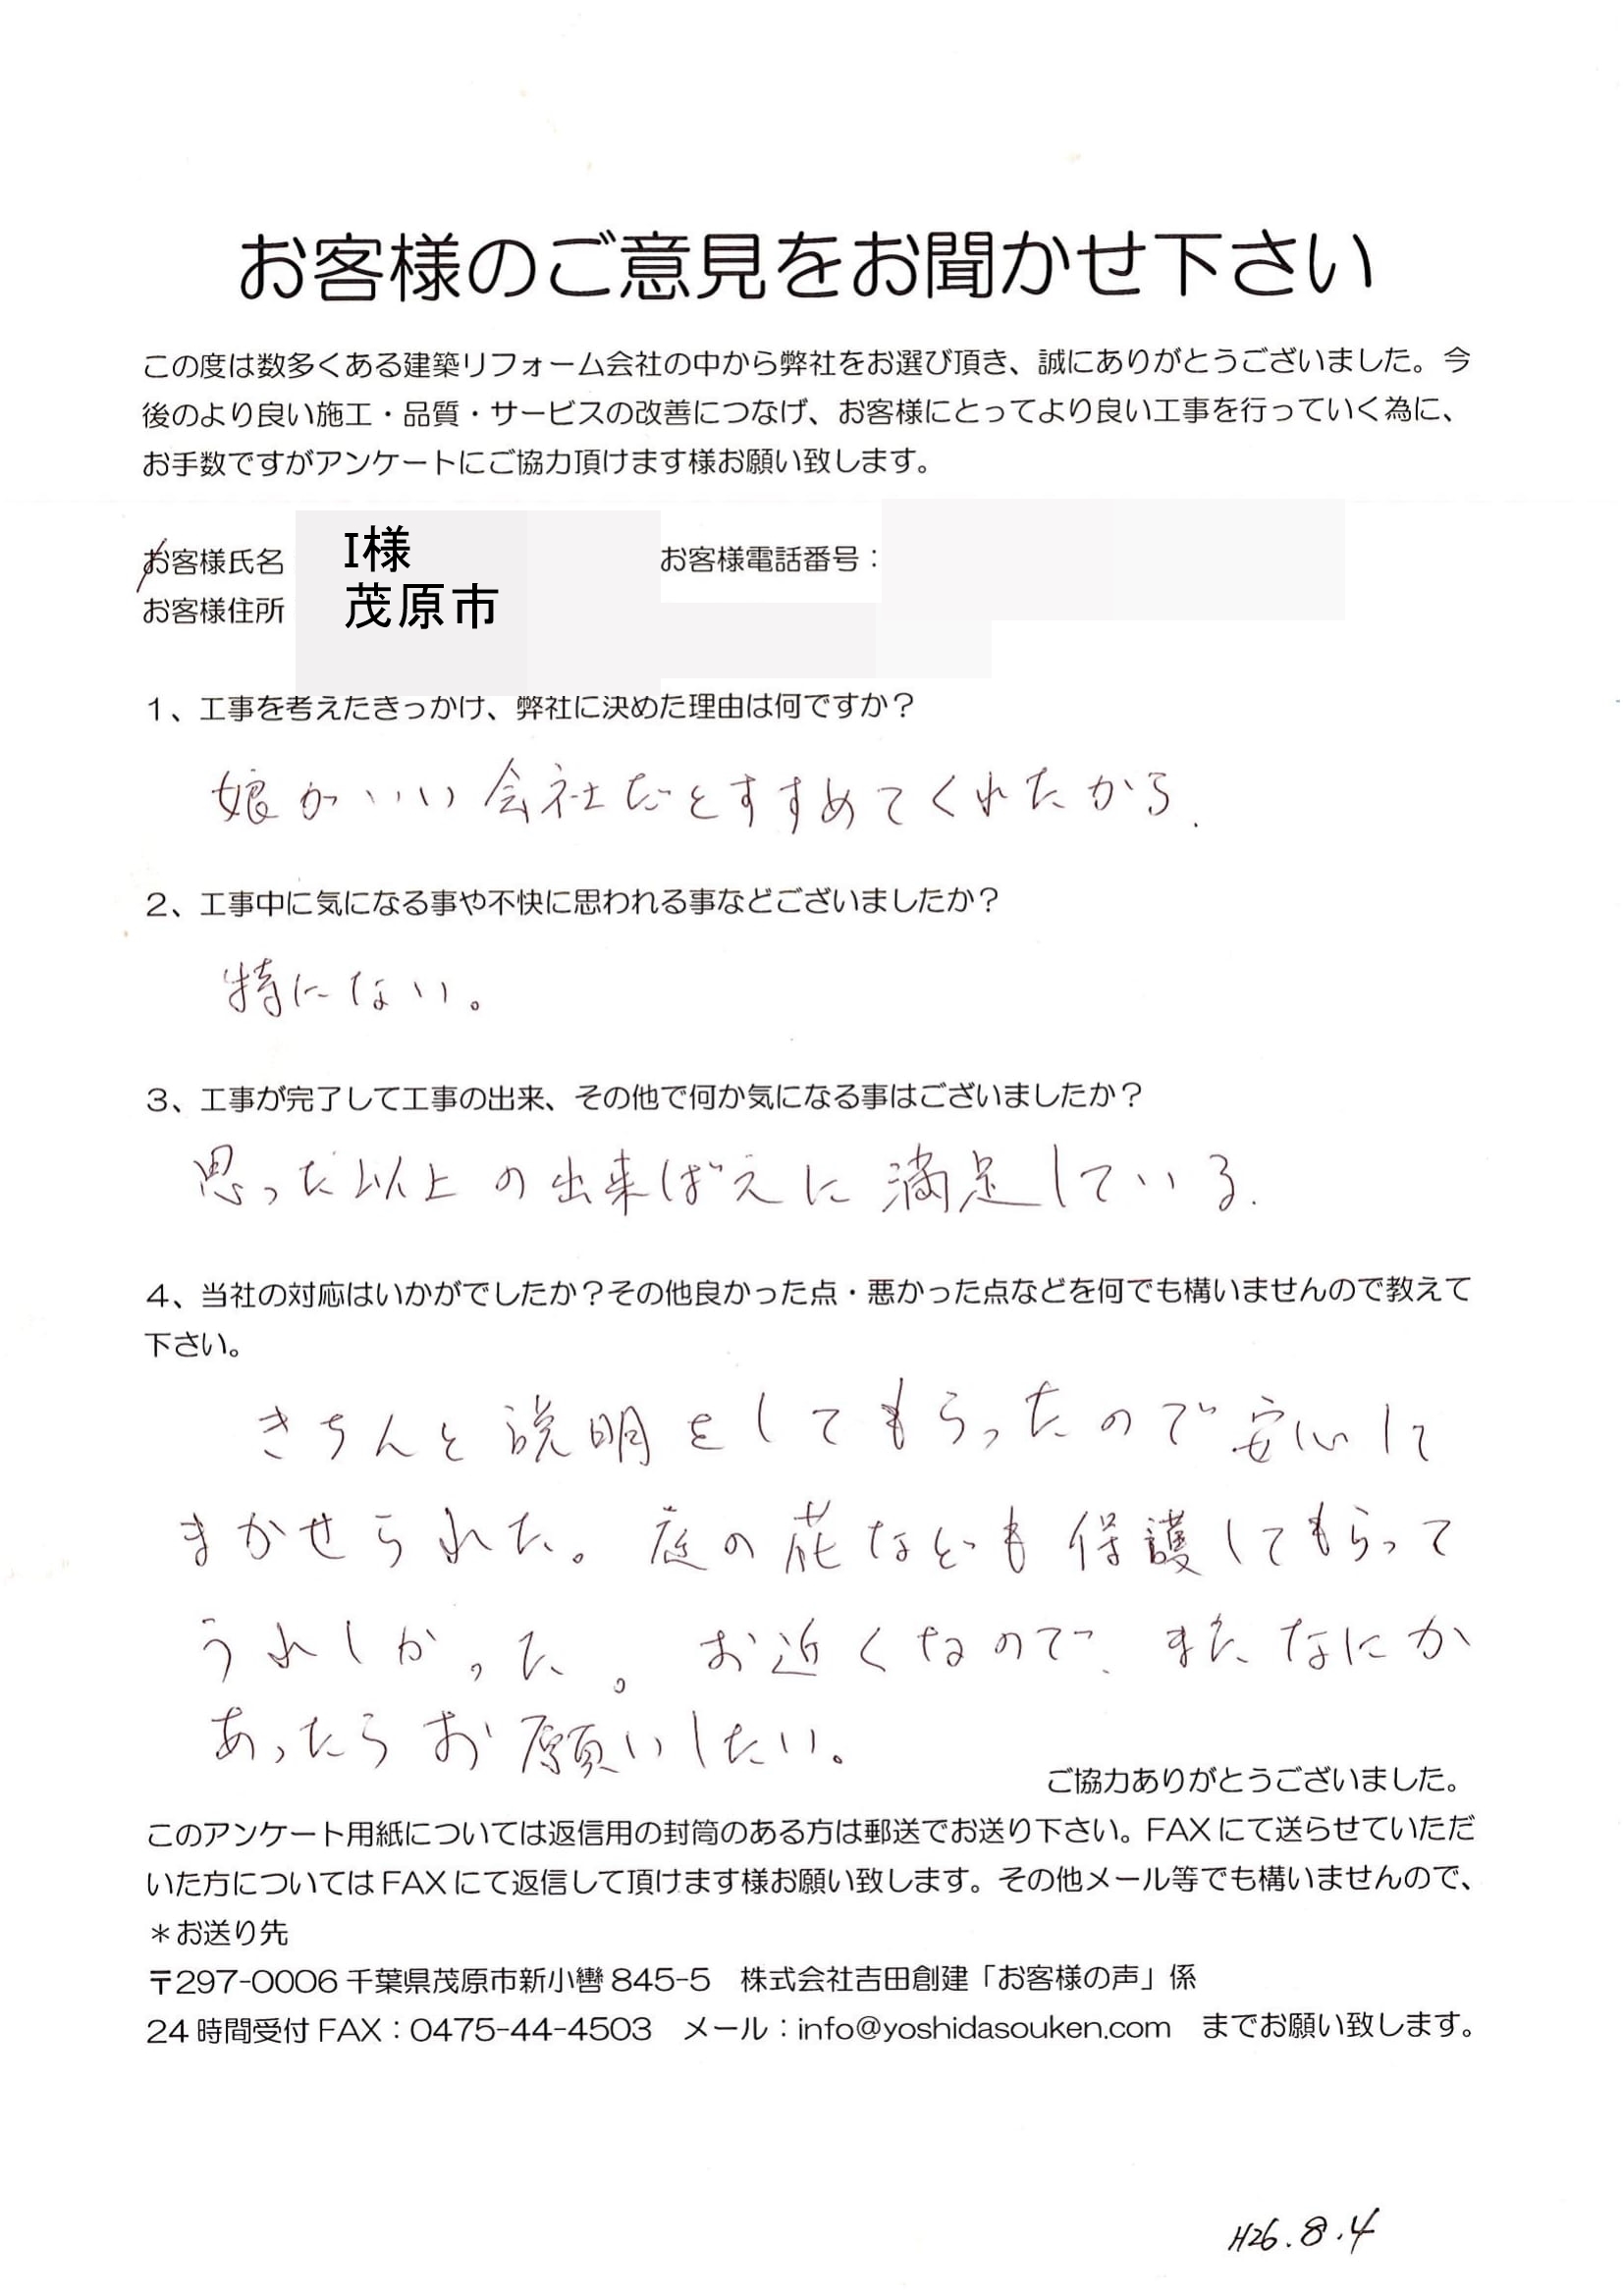 お客様のご意見をお聞かせ下さい
この度は数多くある建築リフォーム会社の中から弊社をお選び頂き、誠にありがとうございました。今
後のより良い施工・品質・サービスの改善につなげ、お客様にとってより良い工事を行っていく為に、
お手数ですがアンケートにご協力頂けます様お願い致します。
お客様氏名 I様 お客様電話番号：
お客様住所 茂原市
1、工事を考えたきっかけ、弊社に決めた理由は何ですか？
娘がいい会社だとすすめてくれたから.
2、工事中に気になる事や不快に思われる事などございましたか？
特にない。
3、工事が完了して工事の出来、その他で何か気になる事はございましたか？
思った以上の出来ばえに満足している.
4、当社の対応はいかがでしたか？その他良かった点・悪かった点などを何でも構いませんので教えて
下さい。
きちんと説明をしてもらったので安心して
まかせられた。庭の花なども保護してもらって
うれしかった。お近くなので、またなにか
あったらお願いしたい。
ご協力ありがとうございました。
このアンケート用紙については返信用の封筒のある方は郵送でお送り下さい。FAXにて送らせていただ
いた方についてはFAXにて返信して頂けます様お願い致します。その他メール等でも構いませんので、
＊お送り先
〒297-0006 千葉県茂原市新小轡845-5　株式会社吉田創建「お客様の声」係
24時間受付FAX：0475-44-4503　メール：info@yoshidasouken.com　までお願い致します。
H26.8.4